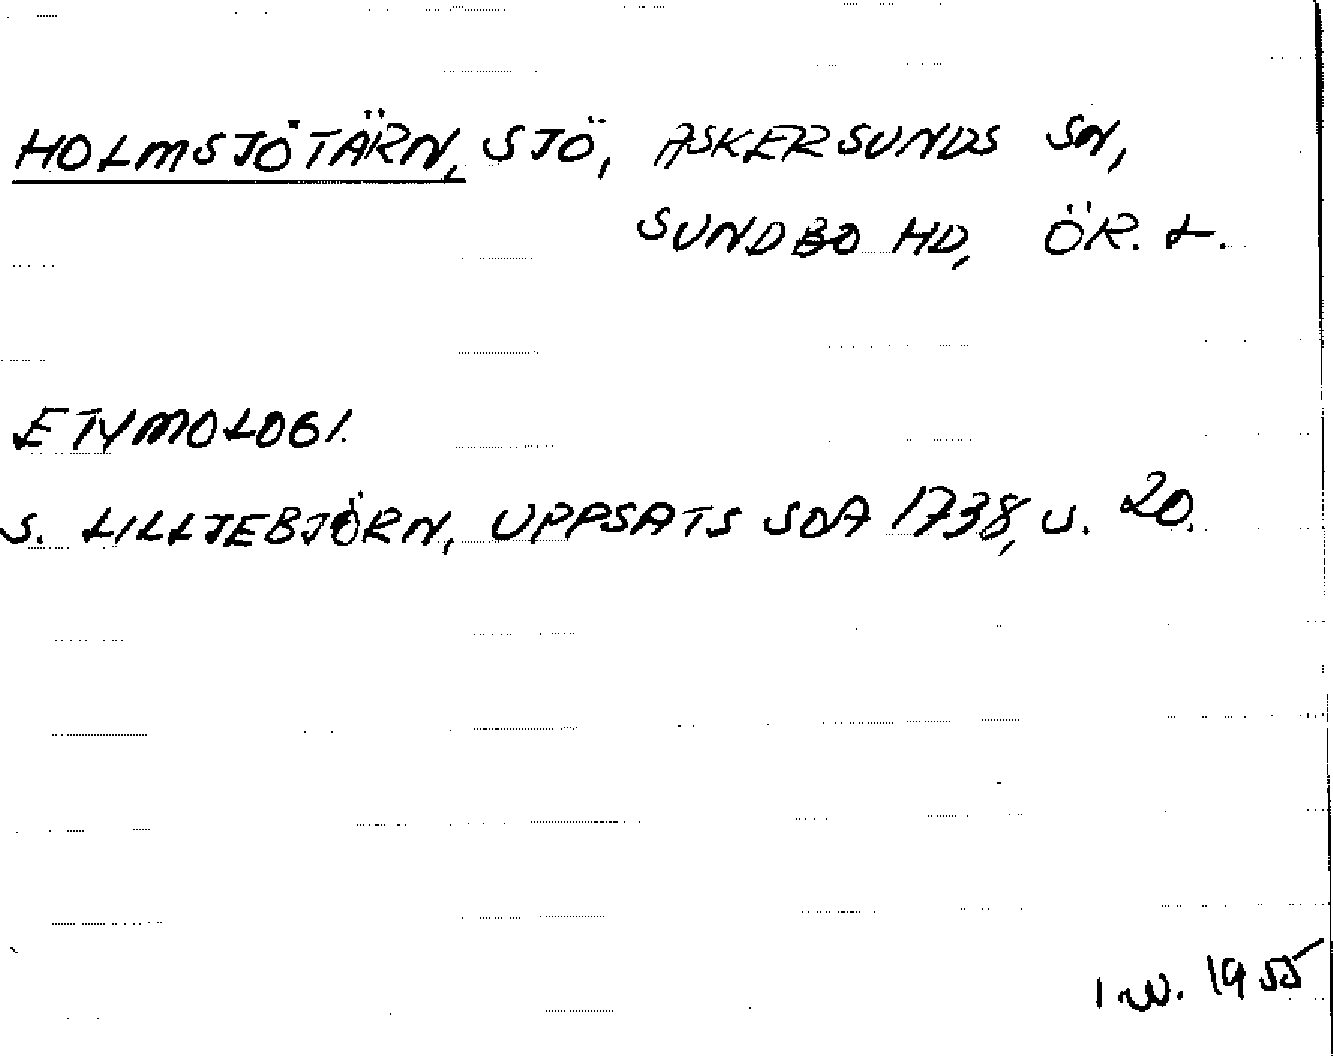 HOLMSJÖTÄRN, SJÖ, ASKERSUNDS SN,
SUNDBO HD, ÖR. L.
ETYMOLOGI.
S. LILLJEBJÖRN, UPPSATS SOA 1738, s. 20.
I W. 1955